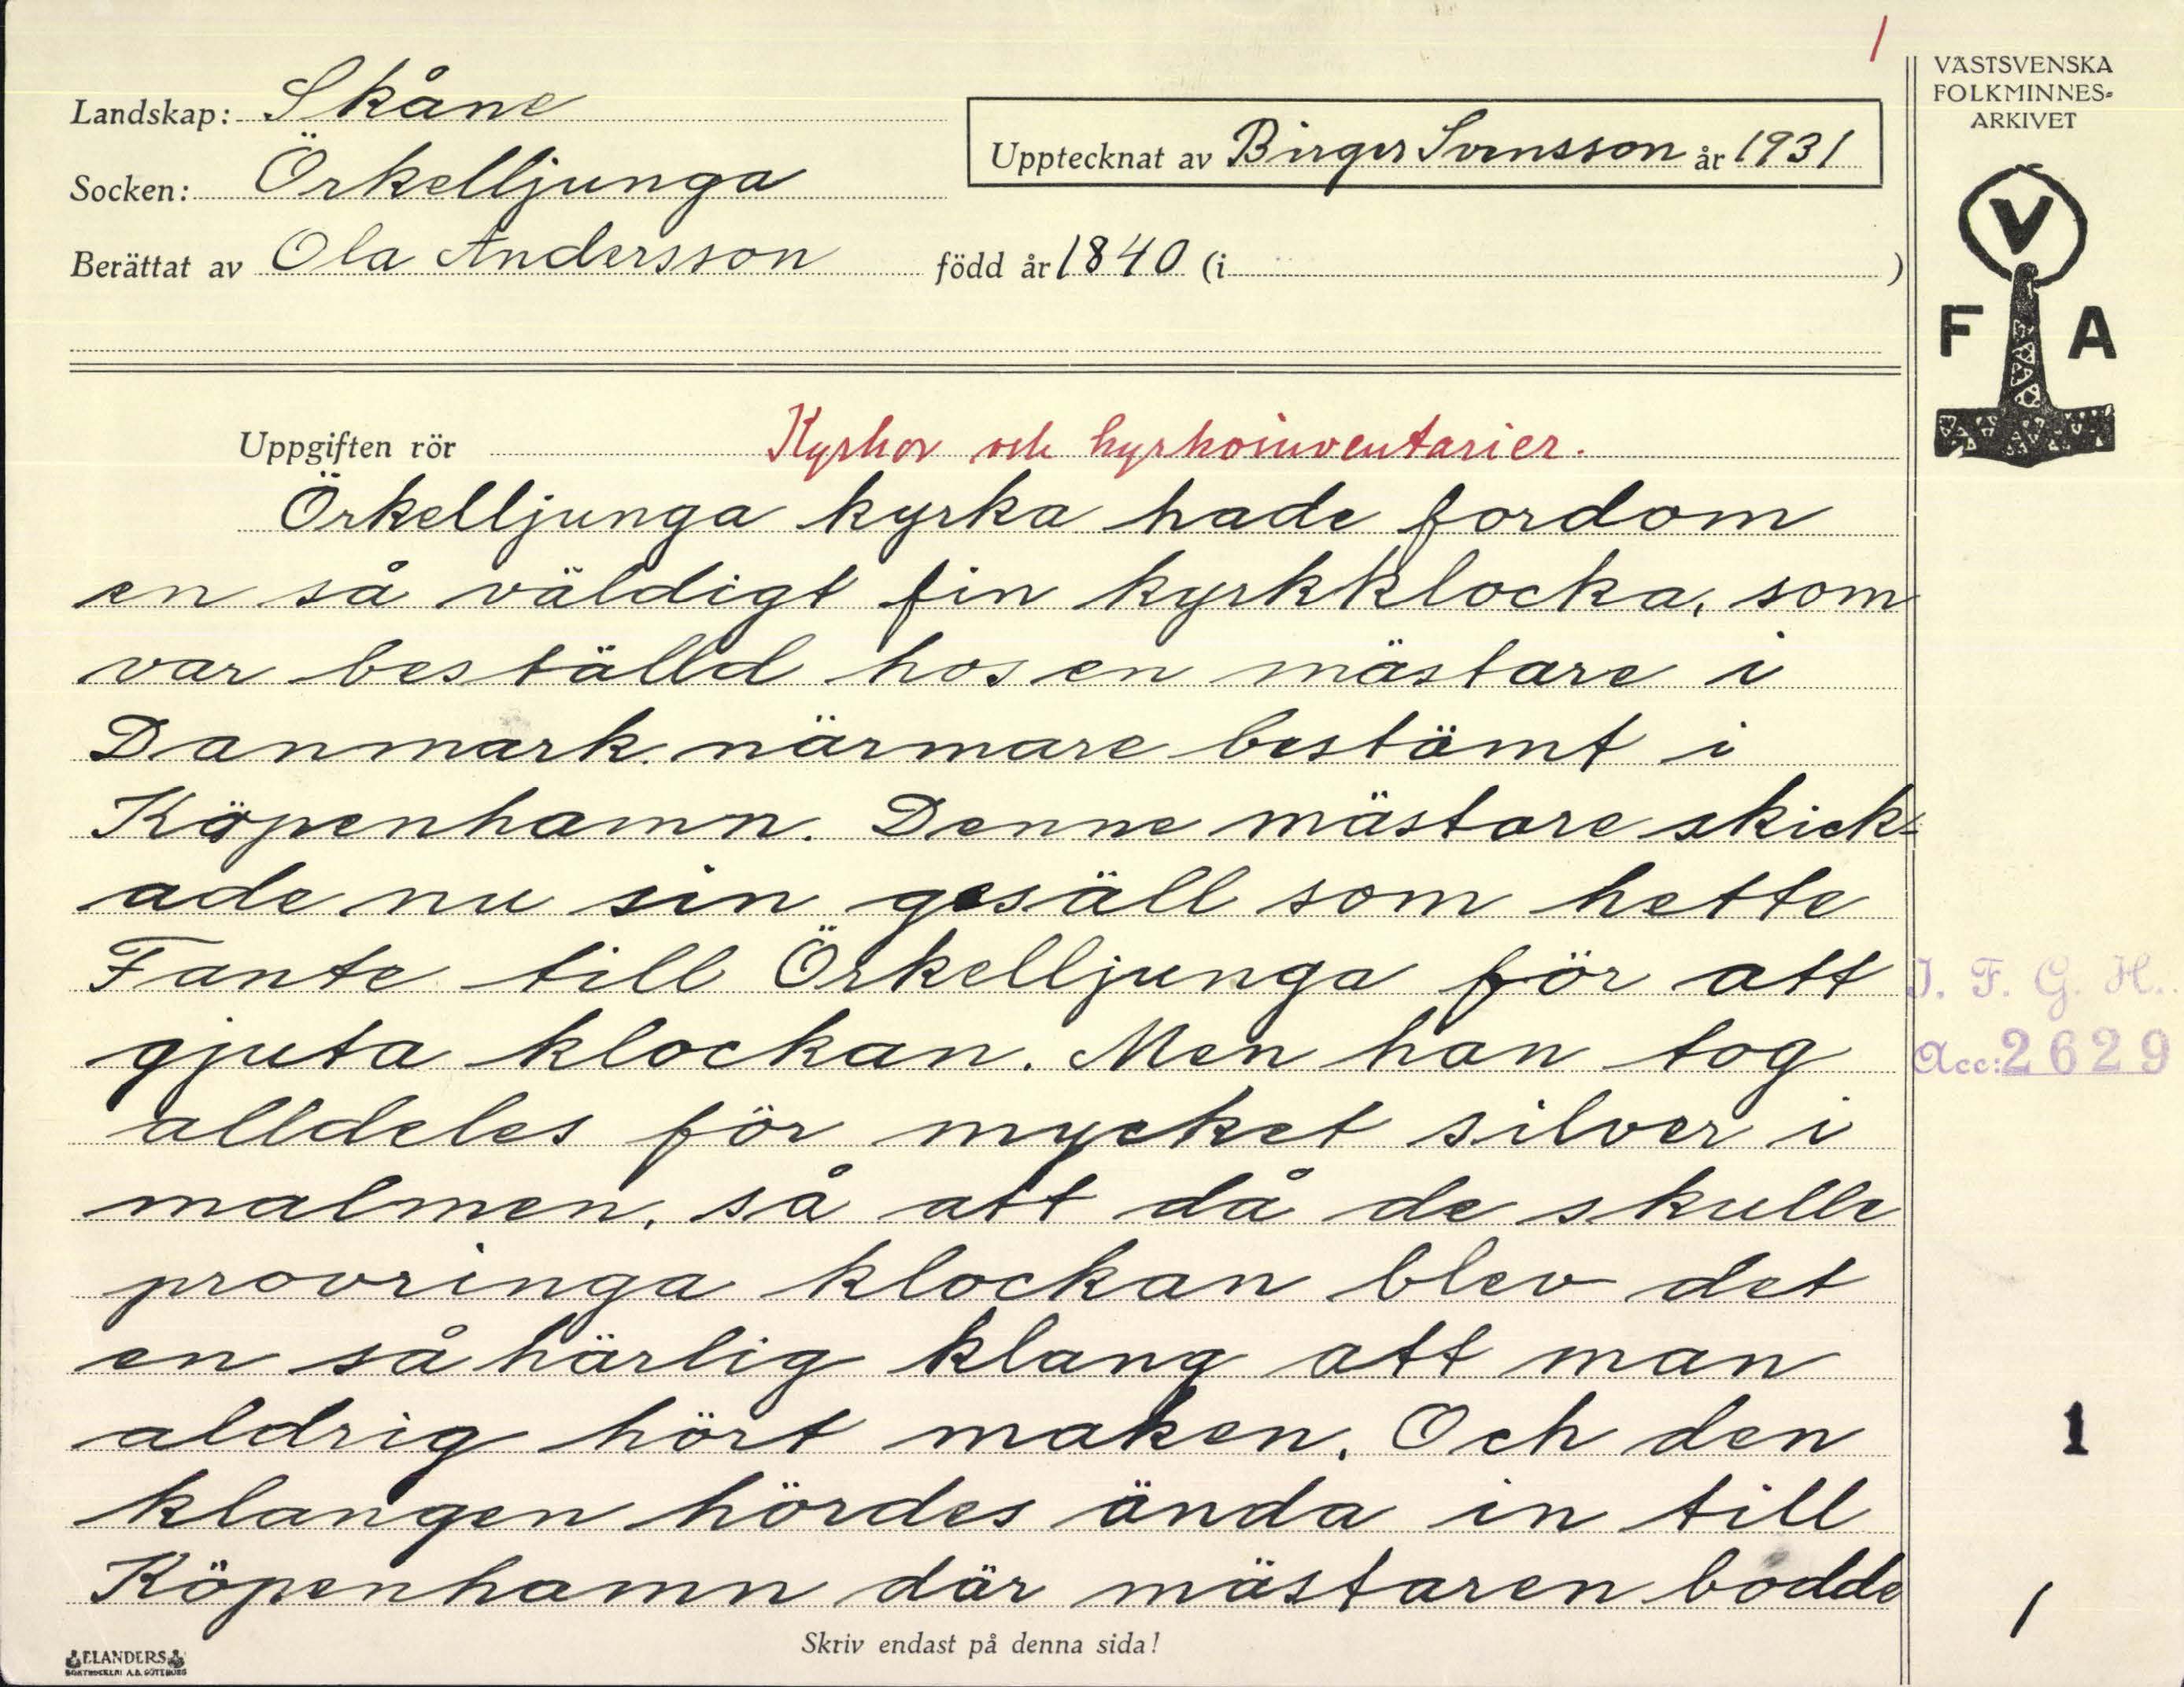 1
VÄSTSVENSKA
FOLKMINNES-
ARKIVET
V
F A
Landskap: Skåne
Upptecknat av Birger Svensson år 1931
Socken: Örkelljunga
Berättat av Ola Andersson född år 1840 (i )
Uppgiften rör Kyrkor och kyrkoinventarier.
Örkelljunga kyrka hade fordom
en så väldigt fin kyrkklocka, som
var beställd hos en mästare i
Danmark. närmare bestämt i
Köpenhamn. Denne mästare skick-
ade nu sin gesäll som hette
Fante till Örkelljunga för att
gjuta klockan. Men han tog
alldeles för mycket silver i
malmen, så att då de skulle
provringa klockan blev det
en så härlig klang att man
aldrig hört maken. Och den
klangen hördes ända in till
Köpenhamn där mästaren bodde
I. F. G. H.
Acc: 2629
1
1
Skriv endast på denna sida!
ELANDERS
BOKTRYCKERI A.B. GÖTEBORG